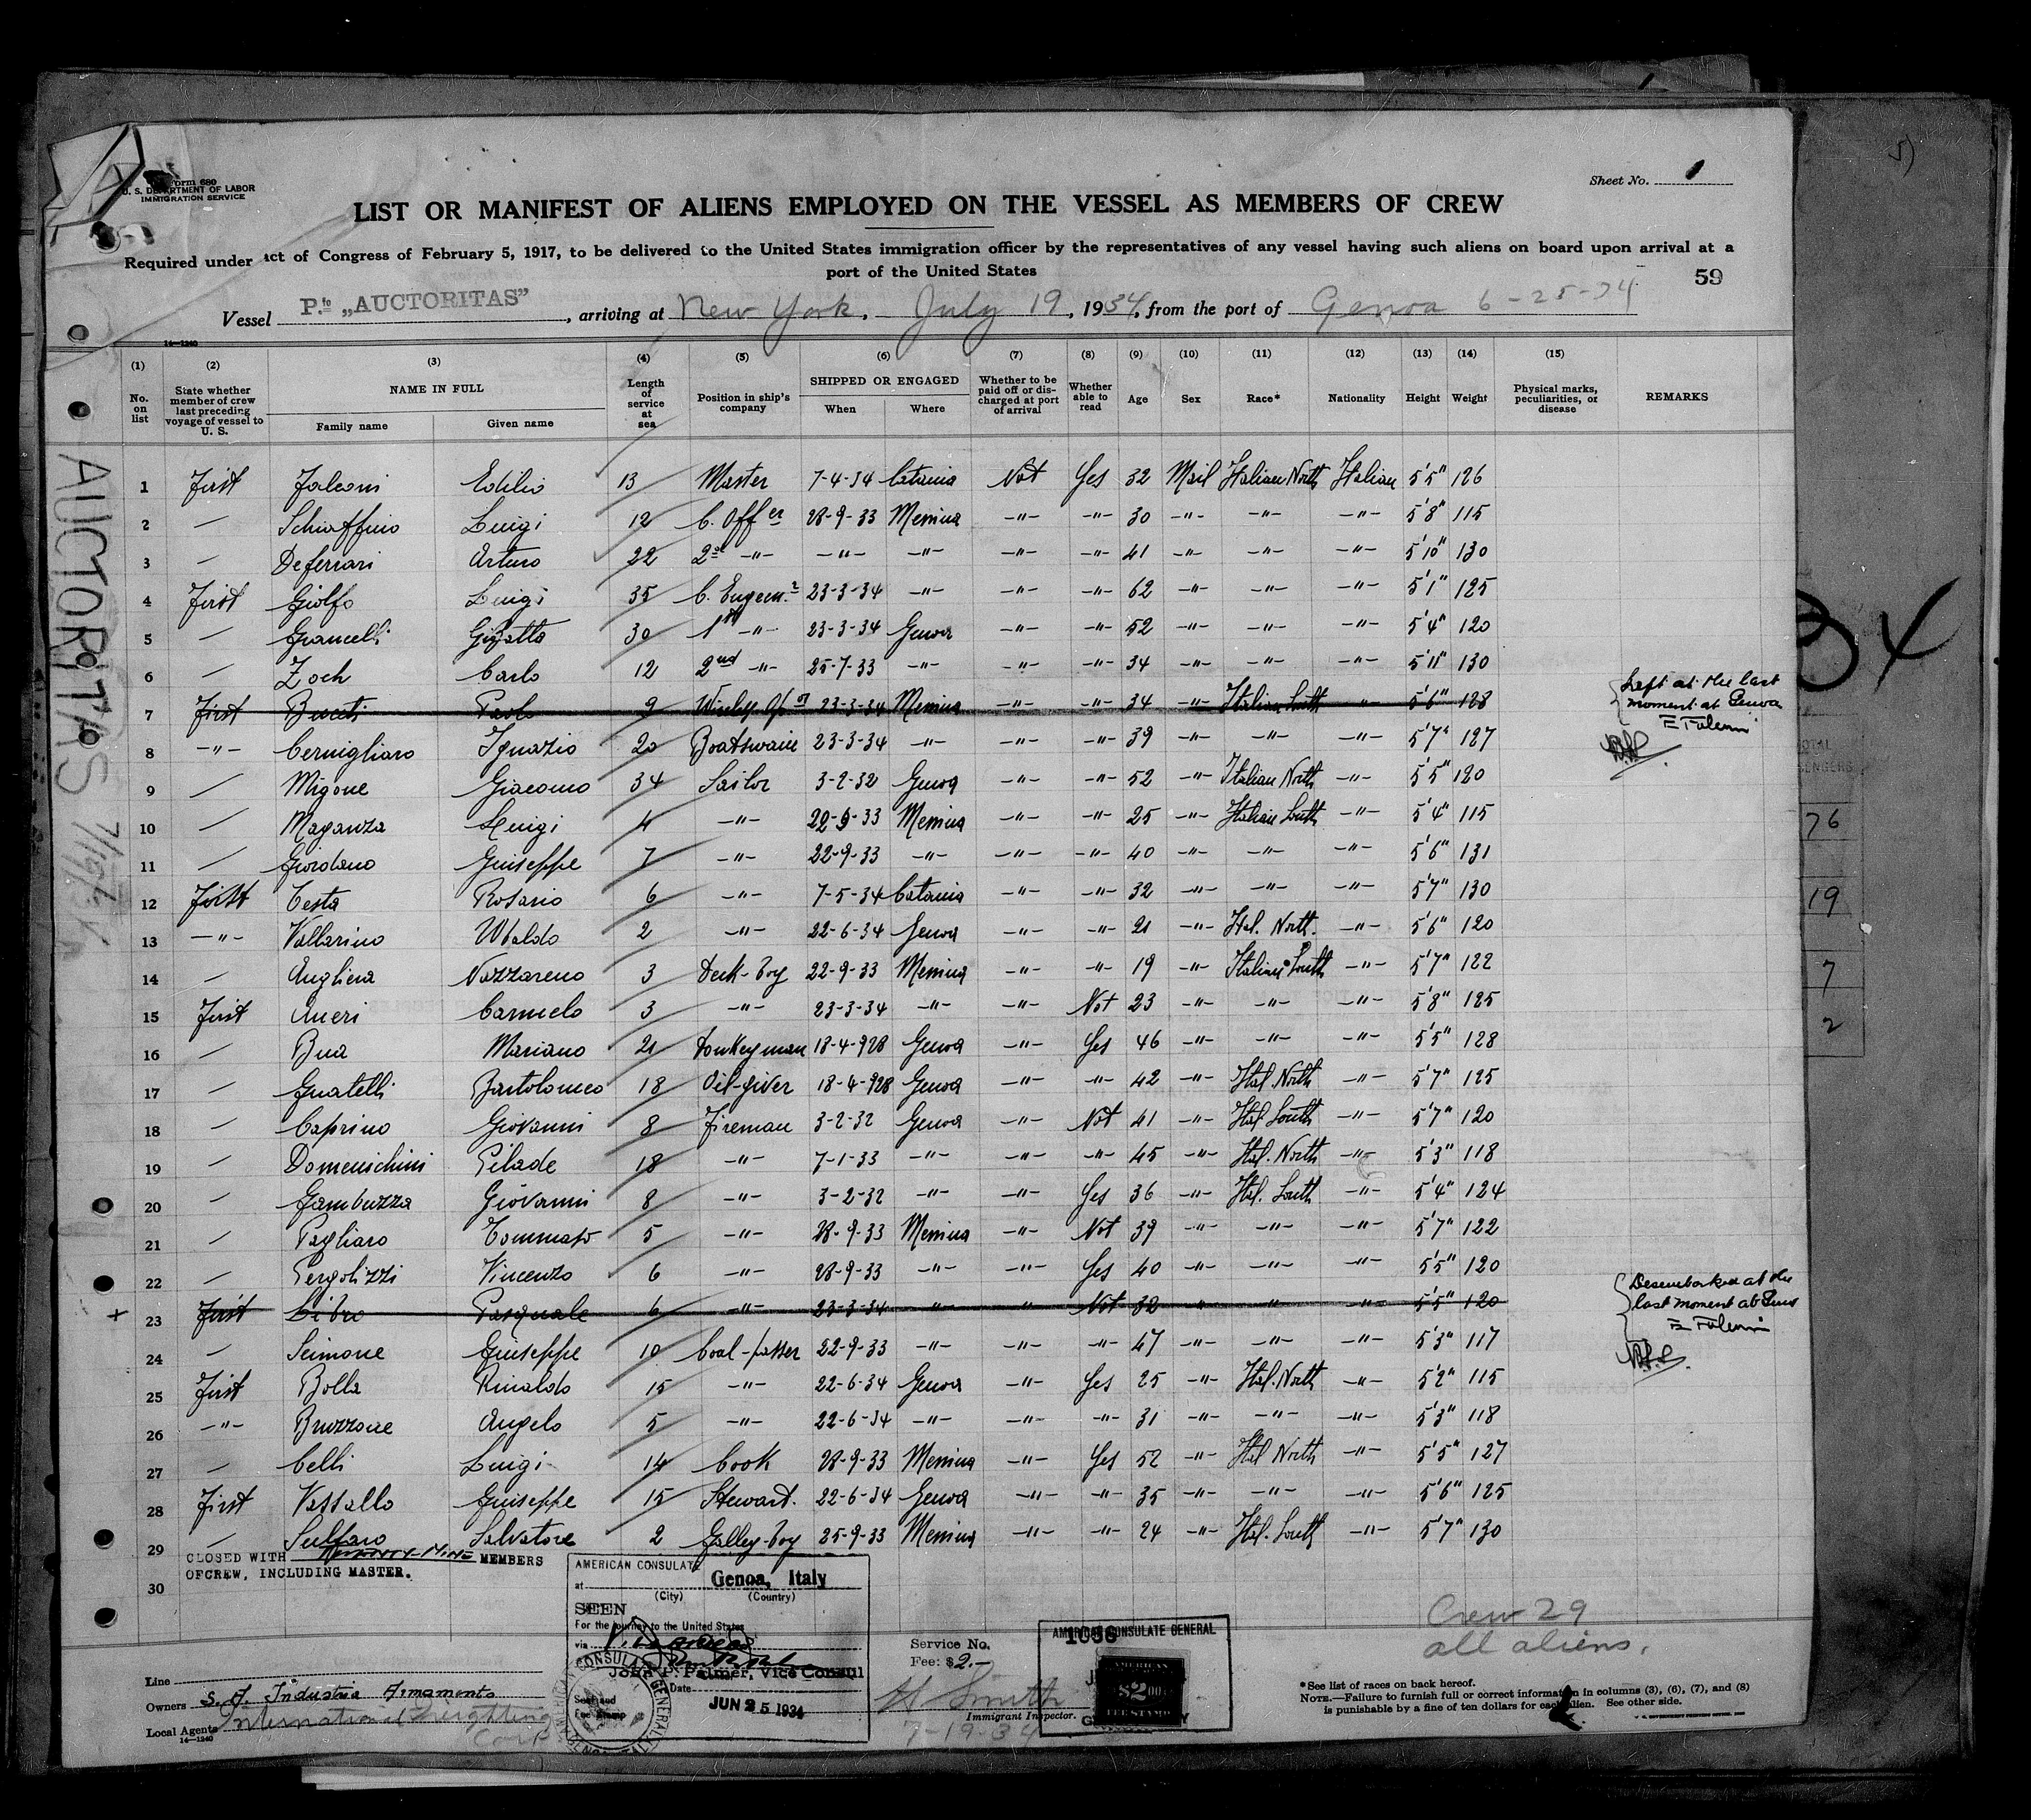 Form 680
U. S. DEPARTMENT OF LABOR
IMMIGRATION SERVICE
Sheet No. 1
LIST OR MANIFEST OF ALIENS EMPLOYED ON THE VESSEL AS MEMBERS OF CREW
Required under act of Congress of February 5, 1917, to be delivered to the United States immigration officer by the representatives of any vessel having such aliens on board upon arrival at a
port of the United States
59
Vessel P.to „AUCTORITAS”, arriving at New York, July 19, 1934, from the port of Genoa 6-25-34
14—1240
(1) (2) (3) (4) (5) (6) (7) (8) (9) (10) (11) (12) (13) (14) (15)
No. on list State whether member of crew last preceding voyage of vessel to U. S. NAME IN FULL Family name Given name Length of service at sea Position in ship's company SHIPPED OR ENGAGED When Where Whether to be paid off or discharged at port of arrival Whether able to read Age Sex Race* Nationality Height Weight Physical marks, peculiarities, or disease REMARKS
AUCTORITAS
1 First Falconi Edilio 13 Master 7-4-34 Catania Not Yes 32 Mail Italian North Italian 5'5" 126
2 — Schiaffino Luigi 12 C. Off er 28-9-33 Messina -"- -"- 30 -"- -"- -"- 5'8" 115
3 — Deferrari Arturo 22 2nd -"- -"- -"- -"- -"- 41 -"- -"- -"- 5'10" 130
4 First Giolfo Luigi 35 C. Engeen.r 23-3-34 -"- -"- -"- 62 -"- -"- -"- 5'1" 125
5 — Giobatta 30 1st -"- 23-3-34 Genoa -"- -"- 52 -"- -"- -"- 5'4" 120
6 — Zoch Carlo 12 2nd -"- 25-7-33 -"- -"- -"- 34 -"- -"- -"- 5'11" 130
7 First Paolo 9 23-3-34 Messina -"- -"- 34 -"- Italian South -"- 5'6" 128 Left at the last
moment at Genoa
8 -"- Cernigliaro Ignazio 20 Boatswain 23-3-34 -"- -"- -"- 39 -"- -"- -"- 5'7" 127
9 — Migone Giacomo 34 Sailor 3-2-32 Genoa -"- -"- 52 -"- Italian North -"- 5'5" 120
10 — Maganza Luigi 4 -"- 22-9-33 Messina -"- -"- 25 -"- Italian South -"- 5'4" 115
11 — Giordano Giuseppe 7 -"- 22-9-33 -"- -"- -"- 40 -"- -"- -"- 5'6" 131
12 First Testa Rosario 6 -"- 7-5-34 Catania -"- -"- 32 -"- -"- -"- 5'7" 130
13 -"- Vallarino Ubaldo 2 -"- 22-6-34 Genoa -"- -"- 21 -"- Ital. North. -"- 5'6" 120
14 — Anghiera Nazzareno 3 Deck-boy 22-9-33 Messina -"- -"- 19 -"- Italian South -"- 5'7" 122
15 First Carmelo 3 -"- 23-3-34 -"- -"- Not 23 -"- -"- -"- 5'8" 125
16 — Bua Mariano 21 Donkeyman 18-4-928 Genoa -"- Yes 46 -"- -"- -"- 5'5" 128
17 — Guatelli Bartolomeo 18 Oil-giver 18-4-928 Genoa -"- -"- 42 -"- Ital. North -"- 5'7" 125
18 — Caprino Giovanni 8 Fireman 3-2-32 Genoa -"- Not 41 -"- Ital South -"- 5'7" 120
19 — Domenichini Pilade 18 -"- 7-1-33 -"- -"- -"- 45 -"- Ital. North -"- 5'3" 118
20 — Gambuzza Giovanni 8 -"- 3-2-32 -"- -"- Yes 36 -"- Ital. South -"- 5'4" 124
21 — Pagliaro Tommaso 5 -"- 28-9-33 Messina -"- Not 39 -"- -"- -"- 5'7" 122
22 — Pergolizzi Vincenzo 6 -"- 28-9-33 -"- -"- Yes 40 -"- -"- -"- 5'5" 120
23 First Libro Pasquale 6 -"- 23-3-34 -"- -"- Not 32 -"- -"- -"- 5'5" 120 Desembarked at the
last moment at
24 — Scimone Giuseppe 10 Coal-passer 22-9-33 -"- -"- -"- 47 -"- -"- -"- 5'3" 117
25 First Bolla Rinaldo 15 -"- 22-6-34 Genoa -"- Yes 25 -"- Ital. North -"- 5'2" 115
26 -"- Bruzzone Angelo 5 -"- 22-6-34 -"- -"- -"- 31 -"- -"- -"- 5'3" 118
27 — Celli Luigi 14 Cook 28-9-33 Messina -"- Yes 52 -"- Ital North -"- 5'5" 127
28 First Vassallo Giuseppe 15 Stewart. 22-6-34 Genoa -"- -"- 35 -"- -"- -"- 5'6" 125
29 — Sulfaro Salvatore 2 Galley-boy 25-9-33 Messina -"- -"- 24 -"- Ital. South -"- 5'7" 130
30
CLOSED WITH Twenty-Nine MEMBERS
OFCREW, INCLUDING MASTER.
AMERICAN CONSULATE
at Genoa, Italy
(City) (Country)
SEEN
For the journey to the United States
via
John P. Palmer, Vice Consul
Date
Seal and
Fee Stamp
JUN 25 1934
Service No. 1036
Fee: $2.—
AMERICAN CONSULATE GENERAL
AMERICAN
$2.00
FEE STAMP
H Smith
Immigrant Inspector.
7-19-34
Crew 29
all aliens.
Line
Owners S. A. Industria Armamento
Local Agents International Freighting
Corp
14—1240
*See list of races on back hereof.
NOTE.—Failure to furnish full or correct information in columns (3), (6), (7), and (8)
is punishable by a fine of ten dollars for each alien. See other side.
34
76
19
7
2